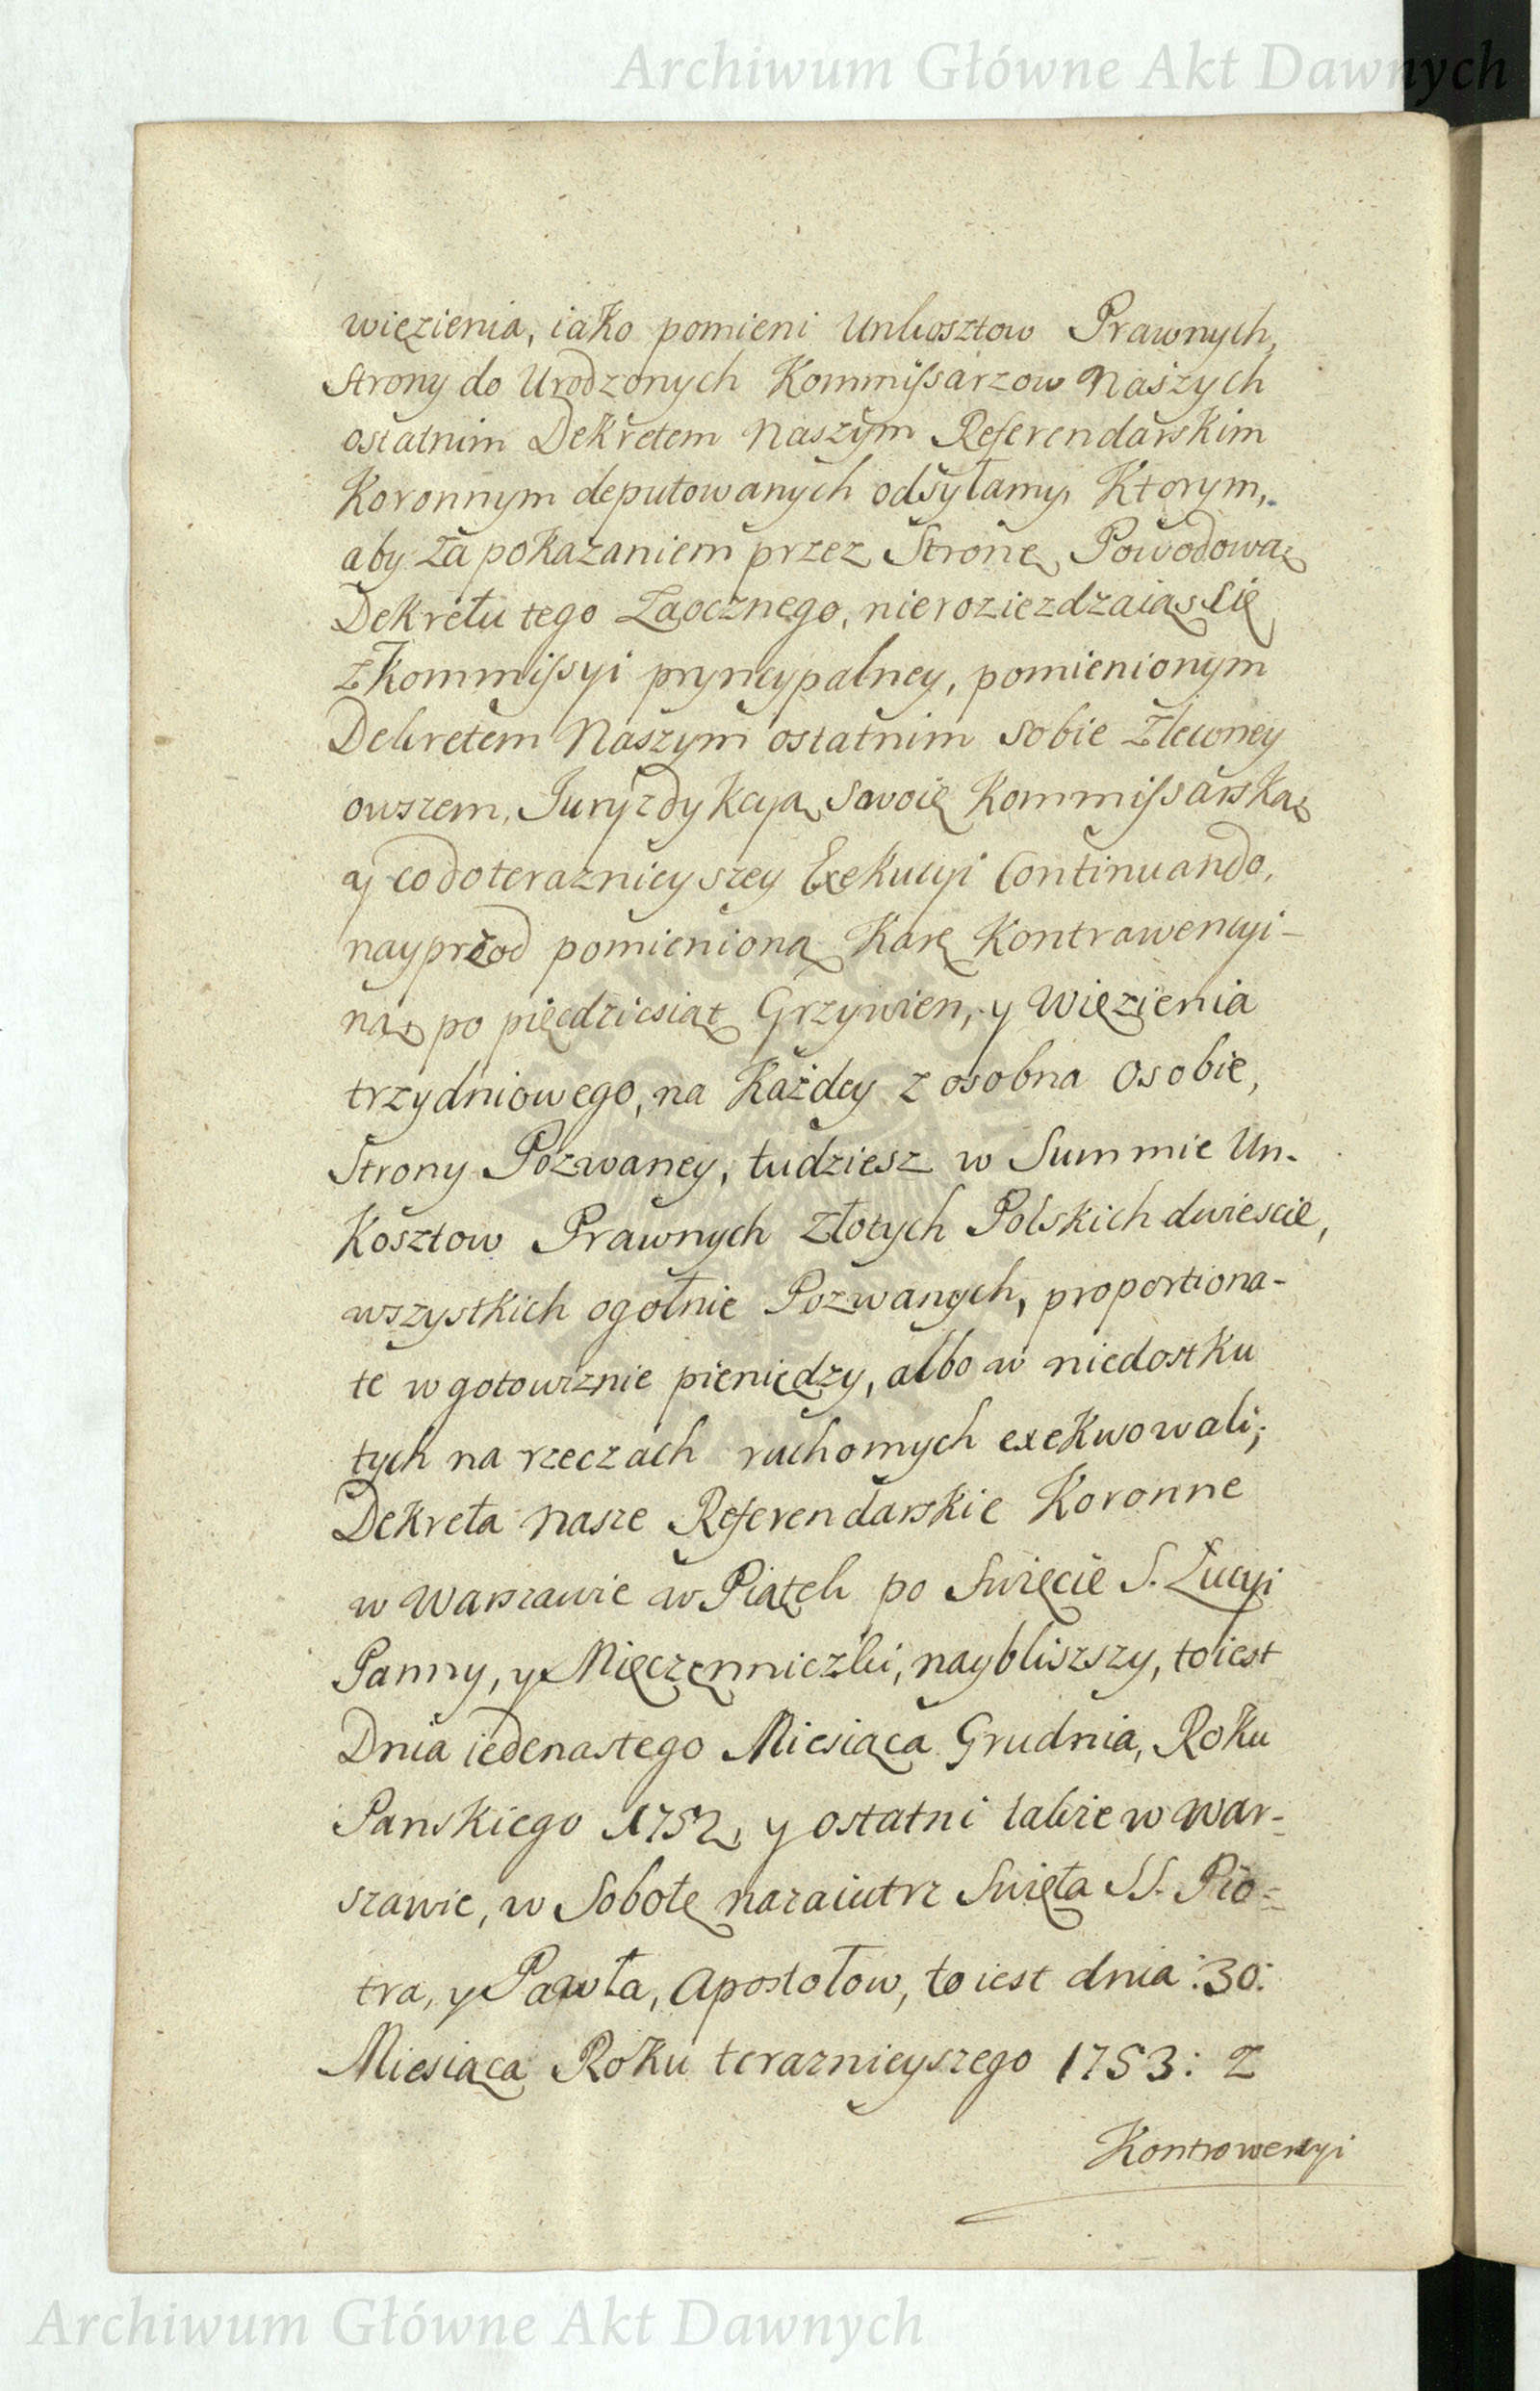 Archiwum Główne Akt Dawnych
więzienia, iako pomieni Unkosztow Prawnych,
Strony do Urodzonych Kommissarzow Naszych
ostatnim Dekretem Naszym Referendarskim
Koronnym deputowanych odsyłamy, Ktorym,
aby za pokazaniem przez Stronę Powodową
Dekretu tego Zaocznego, nierozieżdzaiąs się
z Kommissyi pryncypalney, pomienionym
Dekretem Naszym ostatnim sobie zleconey
owszem, Juryzdykcyą swoię Kommissarską
y co do teraznieyszey Exekucyi Continuando,
nayprzod pomienioną Karę Kontrawencyi-
ną po pięcdziesiąt Grzywien, y Więzienia
trzydniowego, na Każdey z osobna Osobie,
Strony Pozwaney, tudziesz w Summie Un-
Kosztow Prawnych Złotych Polskich dwiescie,
wszystkich ogołnie Pozwanych, proportiona-
te w gotowiznie pieniędzy, albo w niedostku
tych na rzeczach ruchomych exekwowali;
Dekreta nasze Referendarskie Koronne
w Warszawie w Piątek po Swięcie S. Łucyi
Panny, y Męczęnniczki, naybliszszy, to iest
Dnia iedenastego Miesiąca Grudnia, Roku
Panskiego 1752, y ostatni także w War-
szawie, w Sobotę nazaiutrz Swięta SS. Pio-
tra, y Pawła, Apostołow, to iest dnia :30:
Miesiąca Roku teraznieyszego 1753: z
Kontrowencyi
Archiwum Główne Akt Dawnych